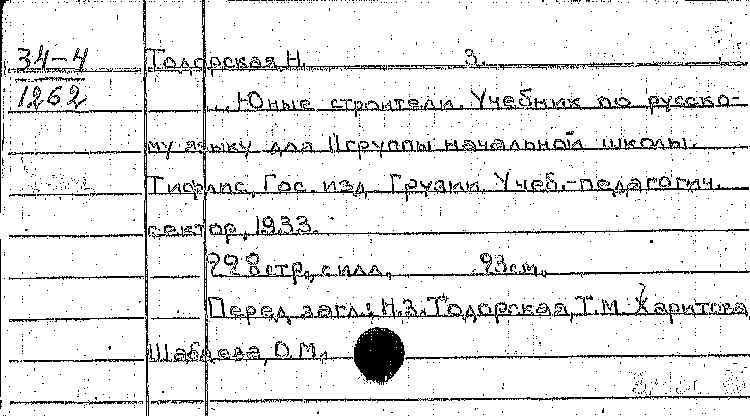 34-4
1262
Тодорская Н. З.
...Юные строители. Учебник по русско-
му языку для II группы начальной школы.
Тифлис, Гос. изд. Грузии. Учеб.-педагогич.
сектор, 1933.
228 стр., с илл. 23 см.
Перед загл.: Н.З. Тодорская, Т.М. Харитова
Шабдева, О.М.